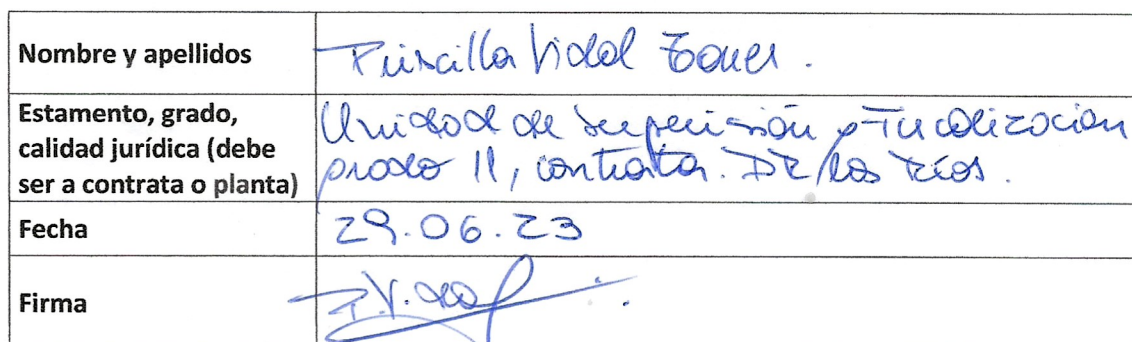 Nombre y apellidos
Priscilla Vidal
Estamento, grado,
calidad jurídica (debe
ser a contrata o planta)
Unidad de Supervisión y Fiscalización
grado 11, contrata. DR Los Ríos.
Fecha
29.06.23
Firma